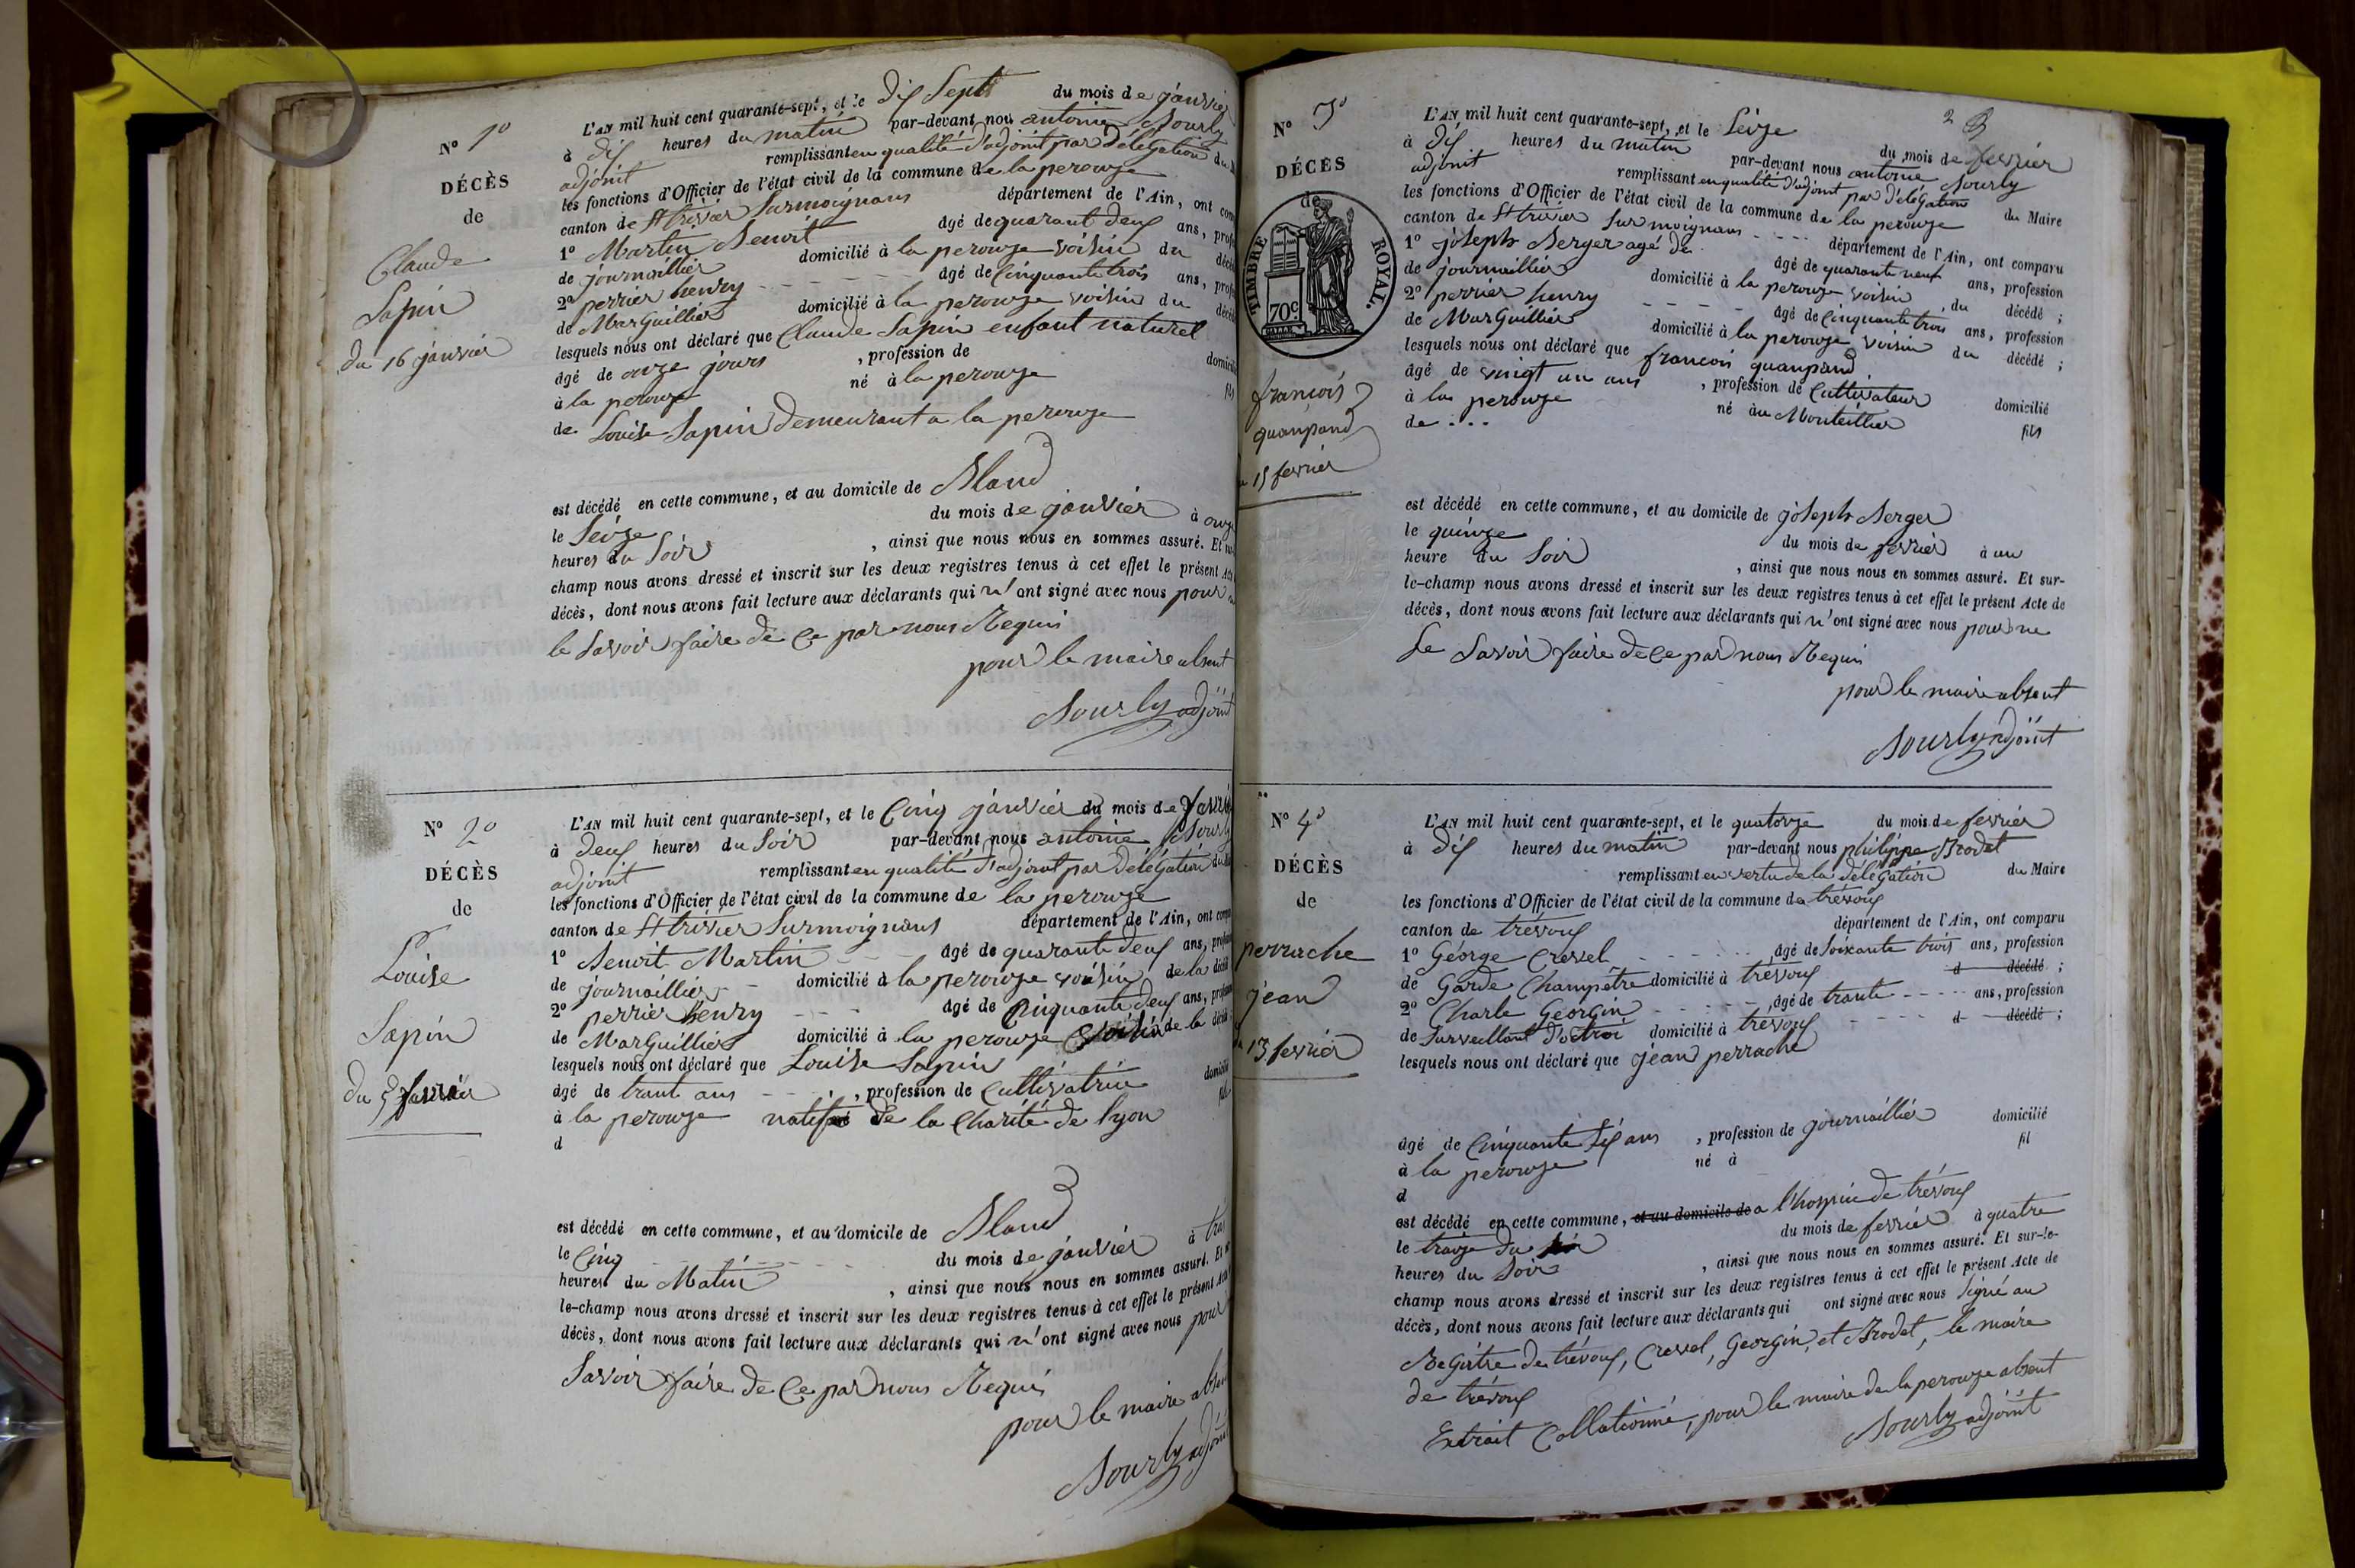 N° 1°
DÉCÈS
de
Claude
Sapin
du 16 janvier
L'AN mil huit cent quarante-sept, et le dix Sept du mois de janvier
à dix heures du matin par-devant nous antoine
adjoint remplissant en qualité d'adjoint par délégation du
les fonctions d'Officier de l'état civil de la commune de la perouze
canton de St trivier Surmoignans département de l'Ain, ont
1° Martin Benoit agé de quarant deux ans,
de journaillier domicilié à la perouze voisin du
2° perrier henry agé de Cinquante trois ans,
de Marguillier domicilié à la perouze voisin du
lesquels nous ont déclaré que Claude Sapin enfant naturel
âgé de onze jours , profession de
à la perouze né à la perouze fils
de Louise Sapin demeurant a la perouze
est décédé en cette commune, et au domicile de Bland
le Seize du mois de janvier à onze
heures du Soir , ainsi que nous nous en sommes assuré. Et
champ nous avons dressé et inscrit sur les deux registres tenus à cet effet le présent
décès, dont nous avons fait lecture aux déclarants qui n'ont signé avec nous pour
le Savoir faire de Ce par nous Requis
pour le maire absent
adjoint
N° 2°
DÉCÈS
de
Louise
Sapin
du 5 janvier
L'AN mil huit cent quarante-sept, et le Cinq janvier du mois de
à deux heures du Soir par-devant nous antoine
adjoint remplissant en qualité d'adjoint par délégation du
les fonctions d'Officier de l'état civil de la commune de la perouze
canton de St trivier Surmoignans département de l'Ain, ont
1° Benoit Martin agé de quarante deux ans,
de journaillier domicilié à la perouze voisin de la
2° perrier henry agé de Cinquante deux ans,
de Marguillier domicilié à la perouze voisin de la
lesquels nous ont déclaré que Louise Sapin
âgé de trant ans , profession de Cultivatrice
à la perouze de la Charité de lyon
d
est décédé en cette commune, et au domicile de Bland
le Cinq du mois de janvier à
heures du Matin , ainsi que nous nous en sommes assuré. Et
le-champ nous avons dressé et inscrit sur les deux registres tenus à cet effet le présent
décès, dont nous avons fait lecture aux déclarants qui n'ont signé avec nous pour
Savoir faire de Ce par nous Requis
pour le maire
adjoint
2
N° 3°
DÉCÈS
de
TIMBRE ROYAL.
70c
francois
quanpand
15 fevrier
L'AN mil huit cent quarante-sept, et le Seize du mois de fevrier
à dix heures du matin par-devant nous antoine
adjoint remplissant en qualité d'adjoint par délégation du Maire
les fonctions d'Officier de l'état civil de la commune de la perouze
canton de St trivier Surmoignans département de l'Ain, ont comparu
1° joseph Berger agé de agé de quarante neuf ans, profession
de journaillier domicilié à la perouze voisin du décédé ;
2° perrier henry agé de Cinquante trois ans, profession
de Marguillier domicilié à la perouze voisin du décédé ;
lesquels nous ont déclaré que francois quanpand
âgé de vingt un ans , profession de Cultivateur domicilié
à la perouze né au Monteillier fils
de . . .
est décédé en cette commune, et au domicile de joseph Berger
le quinze du mois de fevrier à un
heure du Soir , ainsi que nous nous en sommes assuré. Et sur-
le-champ nous avons dressé et inscrit sur les deux registres tenus à cet effet le présent Acte de
décès, dont nous avons fait lecture aux déclarants qui n'ont signé avec nous pour ne
Le Savoir faire de Ce par nous Requis
pour le maire absent
adjoint
N° 4°
DÉCÈS
de
perrache
jean
13 fevrier
L'AN mil huit cent quarante-sept, et le quatorze du mois de fevrier
à dix heures du matin par-devant nous philippe Brodet
remplissant en vertu de la délégation du Maire
les fonctions d'Officier de l'état civil de la commune de trévoux
canton de trévoux département de l'Ain, ont comparu
1° George Cressel agé de Soixante trois ans, profession
de Garde Champêtre domicilié à trévoux d décédé ;
2° Charle Georgin agé de trante ans, profession
de Surveillant d'octroi domicilié à trévoux d décédé ;
lesquels nous ont déclaré que jean perrache
âgé de Cinquante Six ans , profession de journaillier domicilié
à la perouze né à fil
d
est décédé en cette commune, et au domicile de a l'hospice de trévoux
le traize du mois de fevrier à quatre
heures du Soir , ainsi que nous nous en sommes assuré. Et sur-le-
champ nous avons dressé et inscrit sur les deux registres tenus à cet effet le présent Acte de
décès, dont nous avons fait lecture aux déclarants qui ont signé avec nous Signé au
Registre de trévoux, Cressel, Georgin, et Brodet, le maire
de trévoux
Extrait Collationné, pour le maire de la perouze absent
adjoint